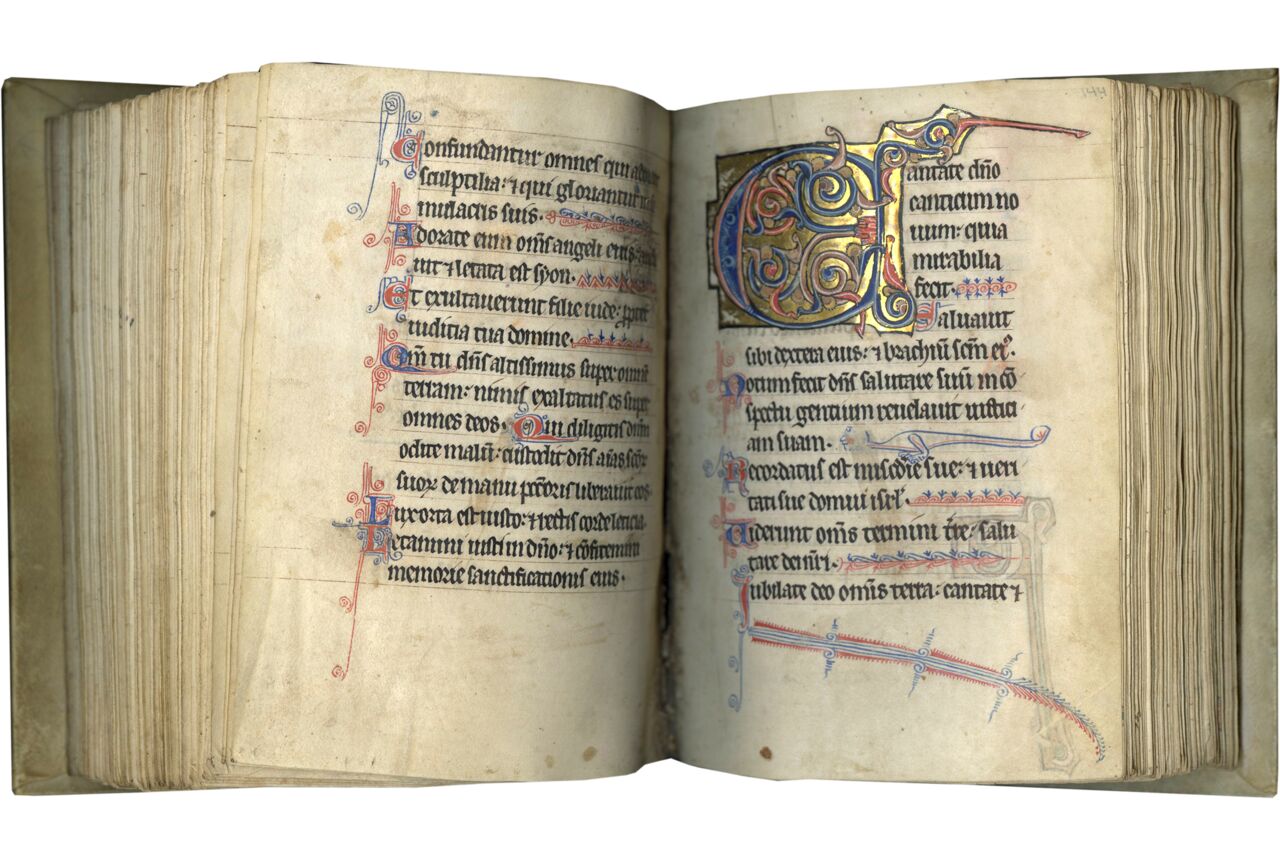 Confundantur omnes qui ado
sculptilia: ⁊ qui gloriantur
mulacris suis.
Adorate eum om̄s angeli eius:
uit ⁊ letata est syon.
Et exultauerunt filie iude:
iudicia tua domine.
Qm̄ tu dn̄s altissimus super omnē
terram: nimis exaltatus es super
omnes deos. Qui diligitis dn̄m
odite malū: custodit dn̄s
suoꝝ de manu pctōris liberauit eos.
Lux orta est iusto: ⁊ rectis corde leticia.
Letamini iusti in dn̄o: ⁊ cōfitemini
memorie sanctificationis eius.
144
Cantate dn̄o
canticum no
uum: quia
mirabilia
fecit.
Saluauit
sibi dextera eius: ⁊ brachiū scm̄ eiꝰ.
Notum fecit dn̄s salutare suū in cō
spectu gentium reuelauit iustici
am suam.
Recordatus est misc̄die sue: ⁊ ueri
tati sue domui isrl̄.
Uiderunt om̄s termini tr̄e: salu
tare dei nr̄i.
Iubilate deo om̄is terra: cantate ⁊